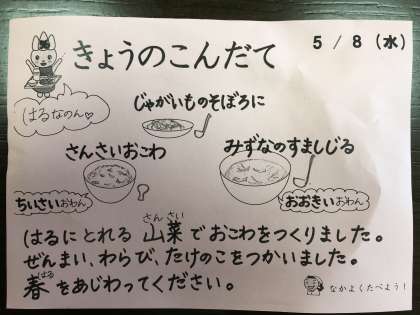 きょうのこんだて
5/8(水)
はるなのん♡
じゃがいものそぼろに
さんさいおこわ
みずなのすましじる
ちいさいおわん
おおきいおわん
はるにとれる山菜でおこわをつくりました。
さんさい
ぜんまい、わらび、たけのこをつかいました。
春をあじわってください。
はる
なかよくたべよう!